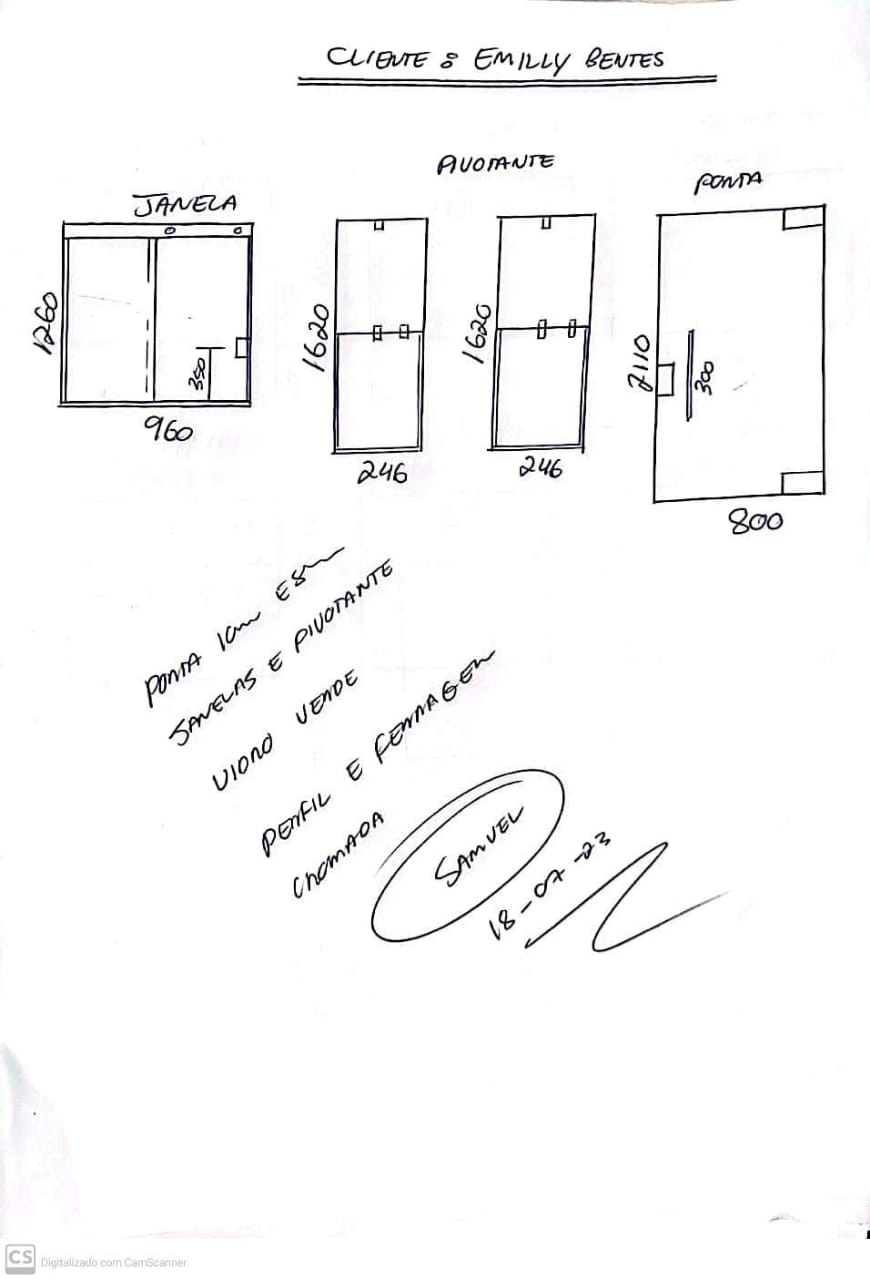 CLIENTE : EMILLY BENTES
PIVOTANTE
PORTA
JANELA
1260
350
960
1620
246
1620
246
2110
300
800
PORTA 1cm E 8m
JANELAS E PIVOTANTE
VIDRO VERDE
PERFIL E FERRAGEM
CROMADA
SAMUEL
18-07-23
CS Digitalizado com CamScanner